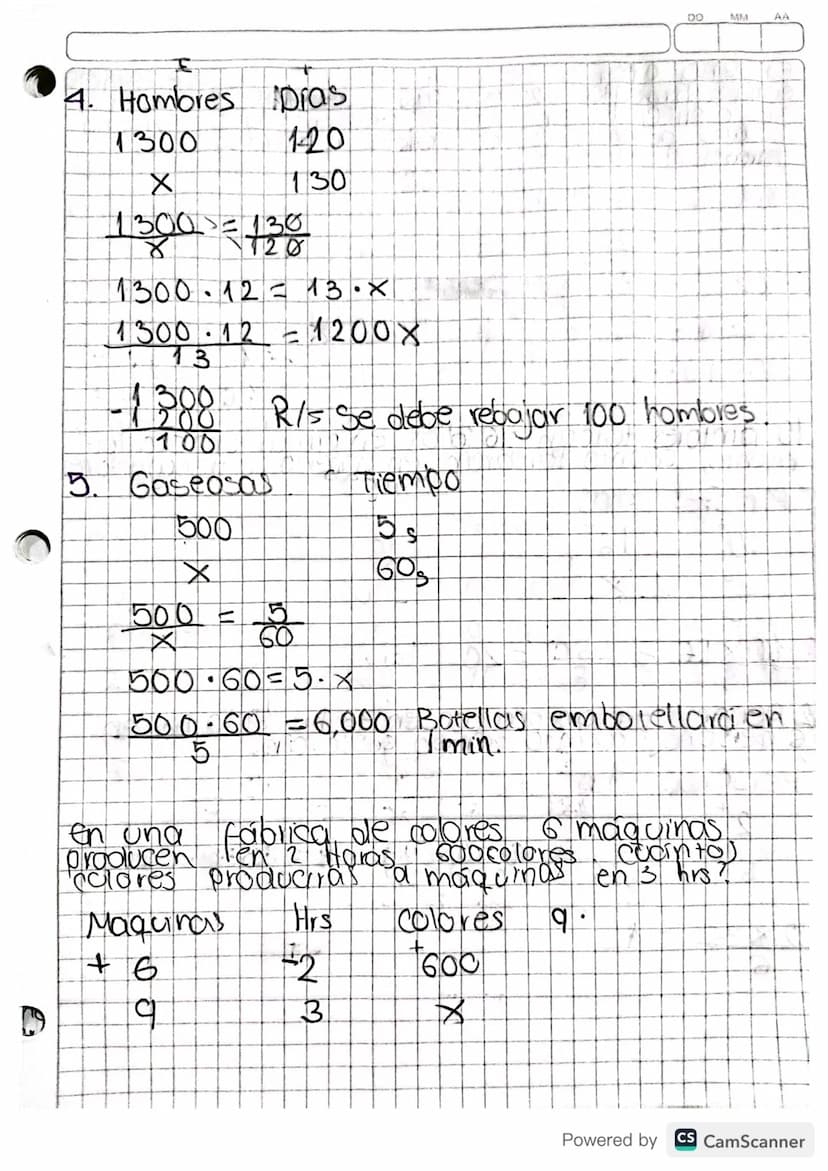 DD MM AA
4. Hombres Días
1300 120
x 130
1300/x = 130/120
1300 · 12 = 13 · x
1300 · 12/13 = 1200x
1300
- 1200
100
R/= Se debe rebajar 100 hombres.
5. Gaseosas Tiempo
500 5s
x 60s
500/x = 5/60
500 · 60 = 5 · x
500 · 60/5 = 6,000 Botellas embotellará en
1 min.
En una fábrica de colores 6 máquinas
producen en 2 Horas 600 colores. Cuántos
colores producirás 9 máquinas en 3 hrs?
Maquinas Hrs colores 9.
+ 6 -2 +600
9 3 x
Powered by CS CamScanner